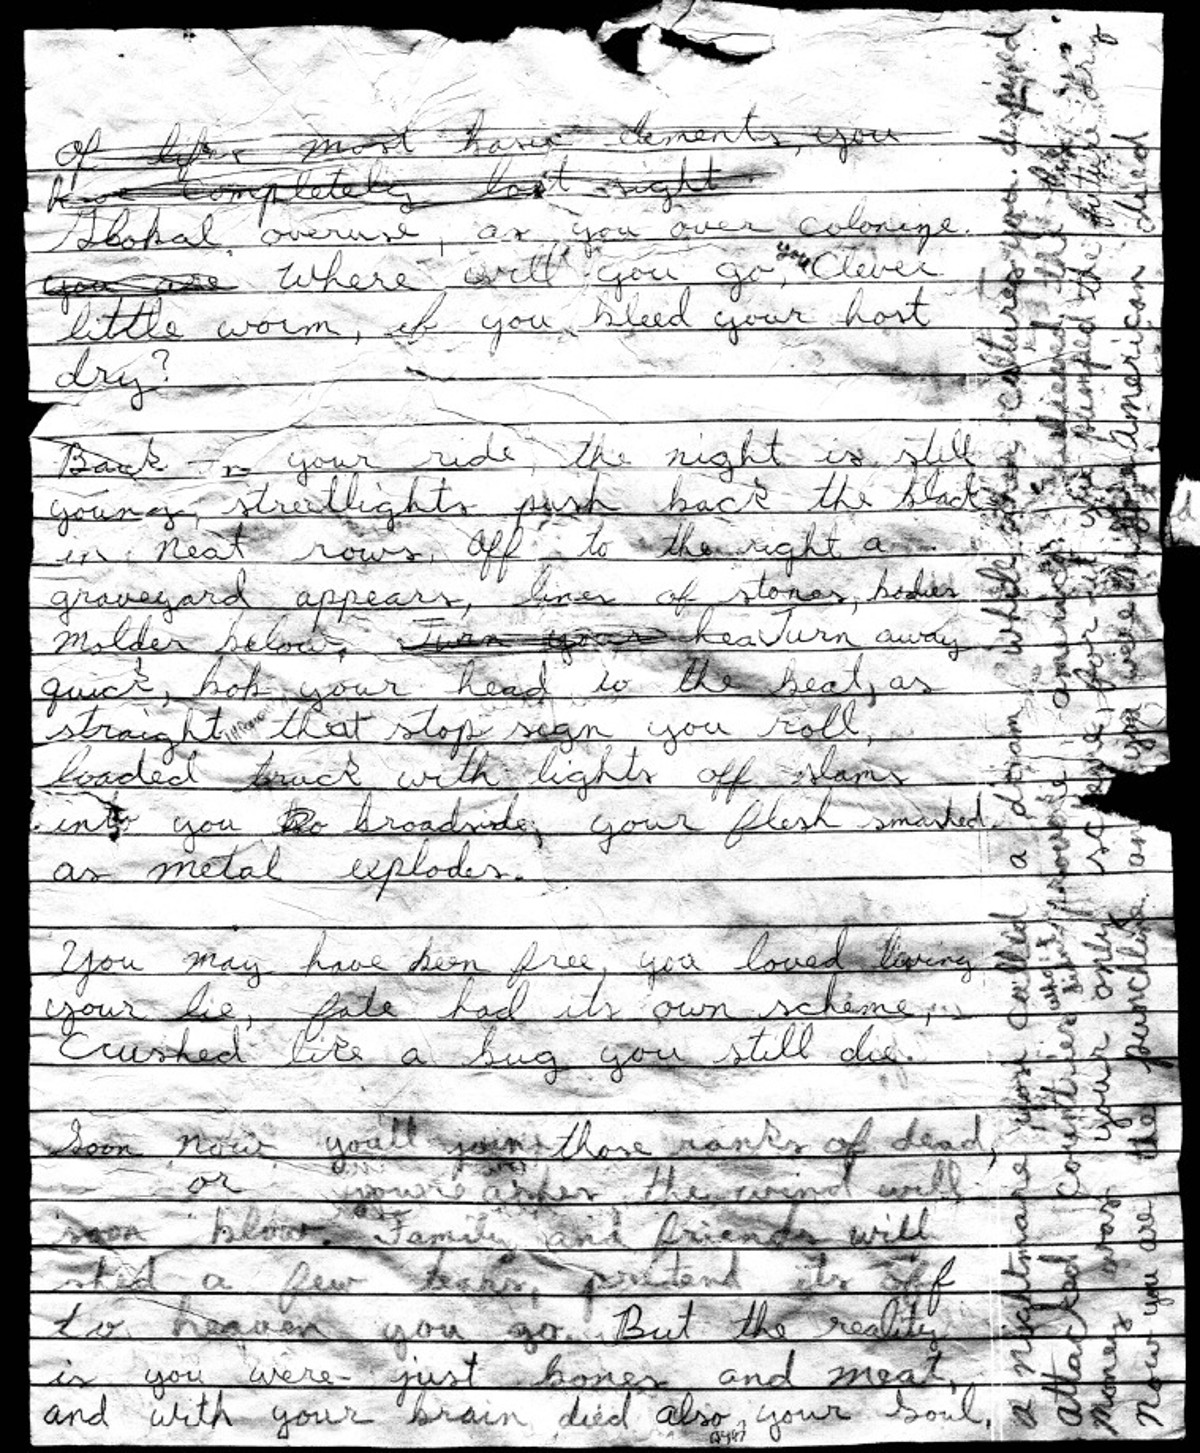 Of lifes most basic elements, you
have completely lost sight.
Global overuse, as you over colonize.
you are Where will you go, you Clever
little worm, if you bleed your host
dry?
Back in your ride, the night is still
young, streetlights push back the black
in neat rows. Off to the right a
graveyard appears, lines of stones, bodies
molder below. Turn your hea Turn away
quick, bob your head to the beat, as
straight through that stop sign you roll,
loaded truck with lights off slams
into you broadside, your flesh smashed
as metal explodes.
You may have been free, you loved living
your lie, fate had its own scheme,
Crushed like a bug you still die.
Soon now you'll join those ranks of dead,
or your ashes the wind will
soon blow. Family and friends will
shed a few tears, pretend its off
to heaven you go. But the reality
is you were just bones and meat,
and with your brain died also your soul.
a nightmare you called a dream while other cultures you despised
attacked countries who's
money was your only scheme, for it you pumped the future dry
Now you are the punchline and you were American died